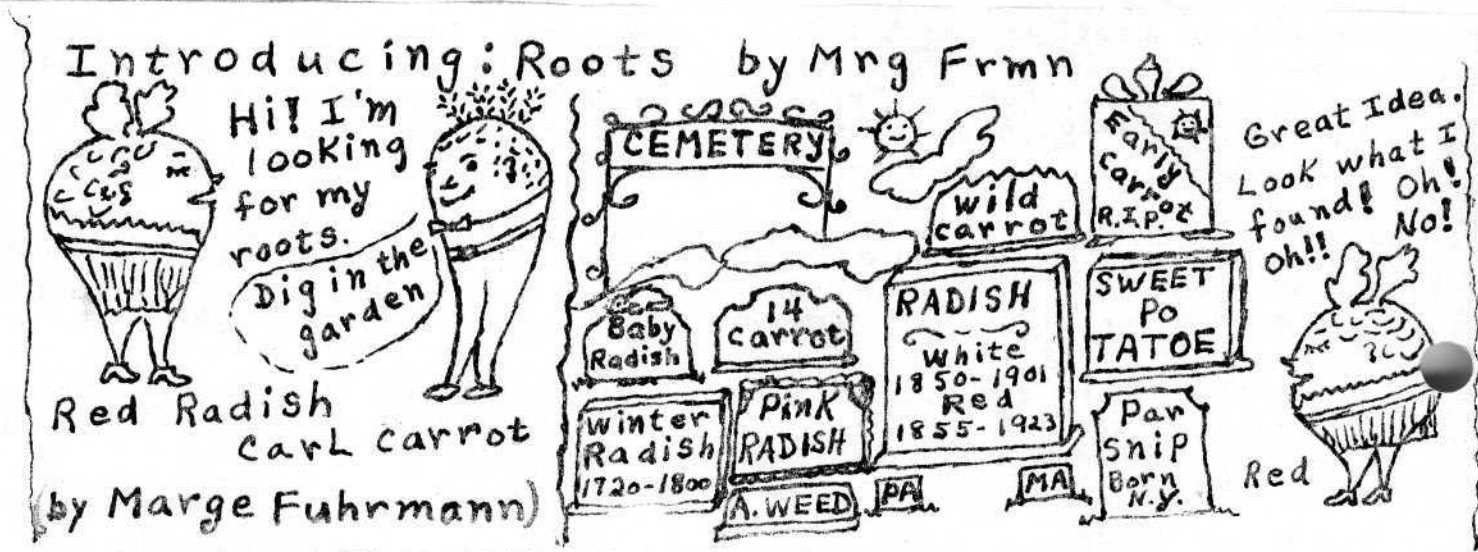 Introducing: Roots by Mrg Frmn
Hi! I'm
looking
for my
roots.
Dig in the
garden
Red Radish
Carl Carrot
(by Marge Fuhrmann)
CEMETERY
wild
carrot
Early
Carrot
R.I.P.
Baby
Radish
14
carrot
RADISH
White
1850-1901
Red
1855-1923
SWEET
Po
TATOE
Winter
Radish
1720-1800
Pink
RADISH
A. WEED
PA
MA
Par
Snip
Born
N.Y.
Great Idea.
Look what I
found! Oh!
Oh!! No!
Red